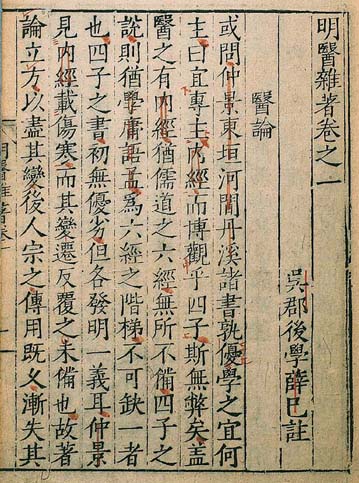 明醫雜著卷之一
吳郡後學薛己註
醫論
或問仲景東垣河間丹溪諸書孰優學之宜何
主曰宜專主內經而博觀乎四子斯無弊矣蓋
醫之有內經猶儒道之六經無所不備四子之
說則猶學庸語孟為六經之階梯不可缺一者
也四子之書初無優劣但各發明一義耳仲景
見內經載傷寒而其變遷反覆之未備也故著
論立方以盡其變後人宗之傳用既久漸失其